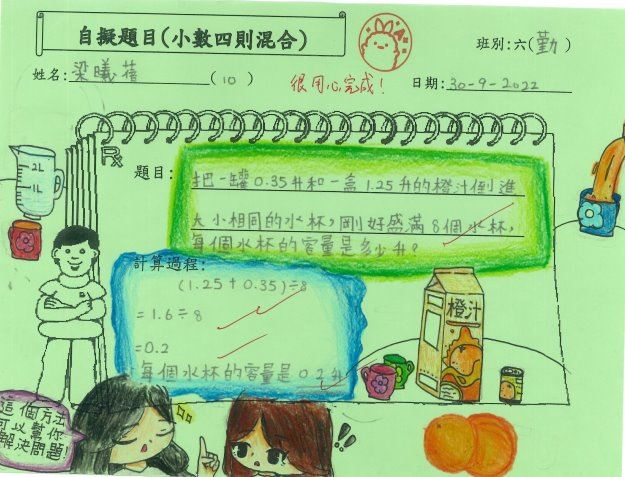 自擬題目(小數四則混合)
班別:六(勤)
姓名:梁曦蓓(10)
很用心完成!
日期:30-9-2022
題目:
把一罐0.35升和一盒1.25升的橙汁倒進
大小相同的水杯,剛好盛滿8個水杯,
每個水杯的容量是多少升?
計算過程:
(1.25+0.35)÷8
=1.6÷8
=0.2
每個水杯的容量是0.2升
2L
1L
橙汁
這個方法
可以幫你
解決問題!
!!